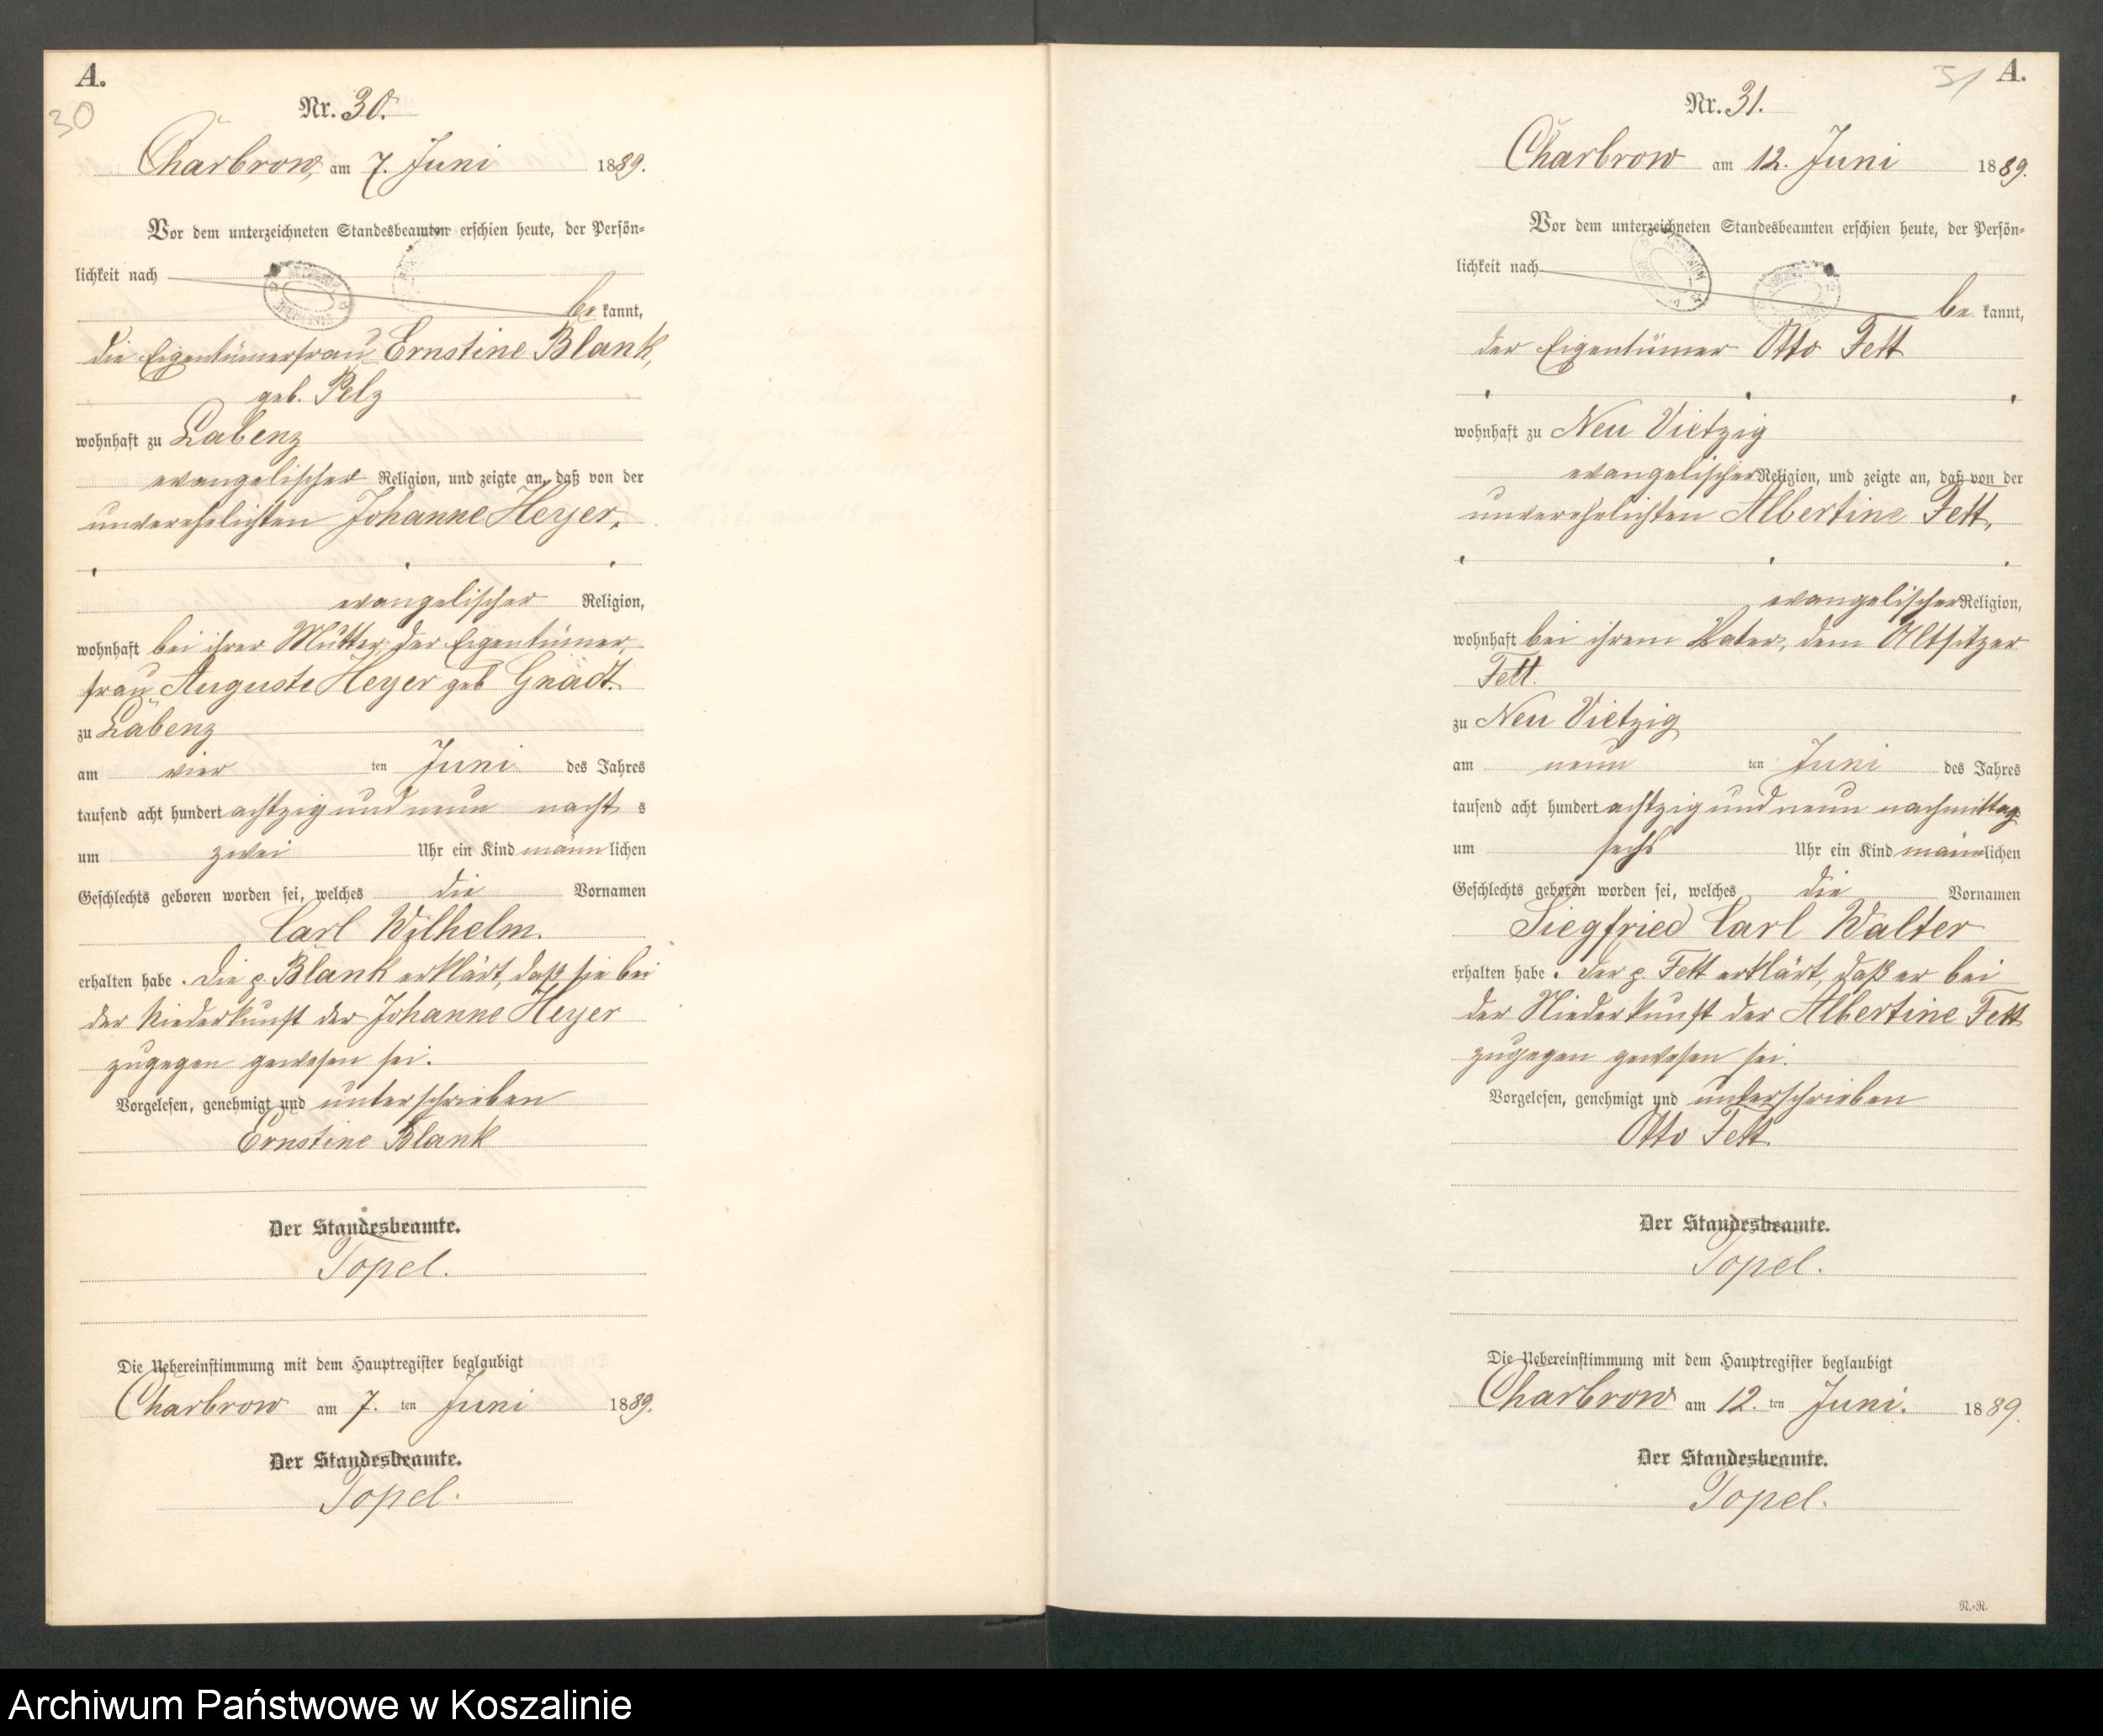 A.
30
Nr. 30.
Charbrow, am 7. Juni 1889.
Vor dem unterzeichneten Standesbeamten erschien heute, der Persön-
lichkeit nach
be kannt,
die Eigentümerfrau Ernstine Blank,
geb. Pelz
wohnhaft zu Labenz
evangelischer Religion, und zeigte an, daß von der
unverehelichten Johanne Heyer,
evangelischer Religion,
wohnhaft bei ihrer Mutter, der Eigentümer,
frau Auguste Heyer geb Gnädt.
zu Labenz
am vier ten Juni des Jahres
tausend acht hundert achtzig und neun nacht s
um zwei Uhr ein Kind männ lichen
Geschlechts geboren worden sei, welches die Vornamen
Carl Wilhelm.
erhalten habe. Die p. Blank erklärt, daß sie bei
der Niederkunft der Johanne Heyer
zugegen gewesen sei.
Vorgelesen, genehmigt und unterschrieben
Ernstine Blank
Der Standesbeamte.
Topel.
Die Uebereinstimmung mit dem Hauptregister beglaubigt
Charbrow am 7. ten Juni 1889.
Der Standesbeamte.
Topel.
A.
31
Nr. 31.
Charbrow am 12. Juni 1889.
Vor dem unterzeichneten Standesbeamten erschien heute, der Persön-
lichkeit nach
be kannt,
der Eigentümer Otto Fett
wohnhaft zu Neu Vietzig
evangelischer Religion, und zeigte an, daß von der
unverehelichten Albertine Fett,
evangelischer Religion,
wohnhaft bei ihrem Vater, dem Altsitzer
Fett.
zu Neu Vietzig
am neun ten Juni des Jahres
tausend acht hundert achtzig und neun nachmittags
um sechs Uhr ein Kind männlichen
Geschlechts geboren worden sei, welches die Vornamen
Siegfried Carl Walter
erhalten habe. Der p. Fett erklärt, daß er bei
der Niederkunft der Albertine Fett
zugegen gewesen sei.
Vorgelesen, genehmigt und unterschrieben
Otto Fett
Der Standesbeamte.
Topel.
Die Uebereinstimmung mit dem Hauptregister beglaubigt
Charbrow am 12. ten Juni. 1889.
Der Standesbeamte.
Topel.
N.-R.
Archiwum Państwowe w Koszalinie